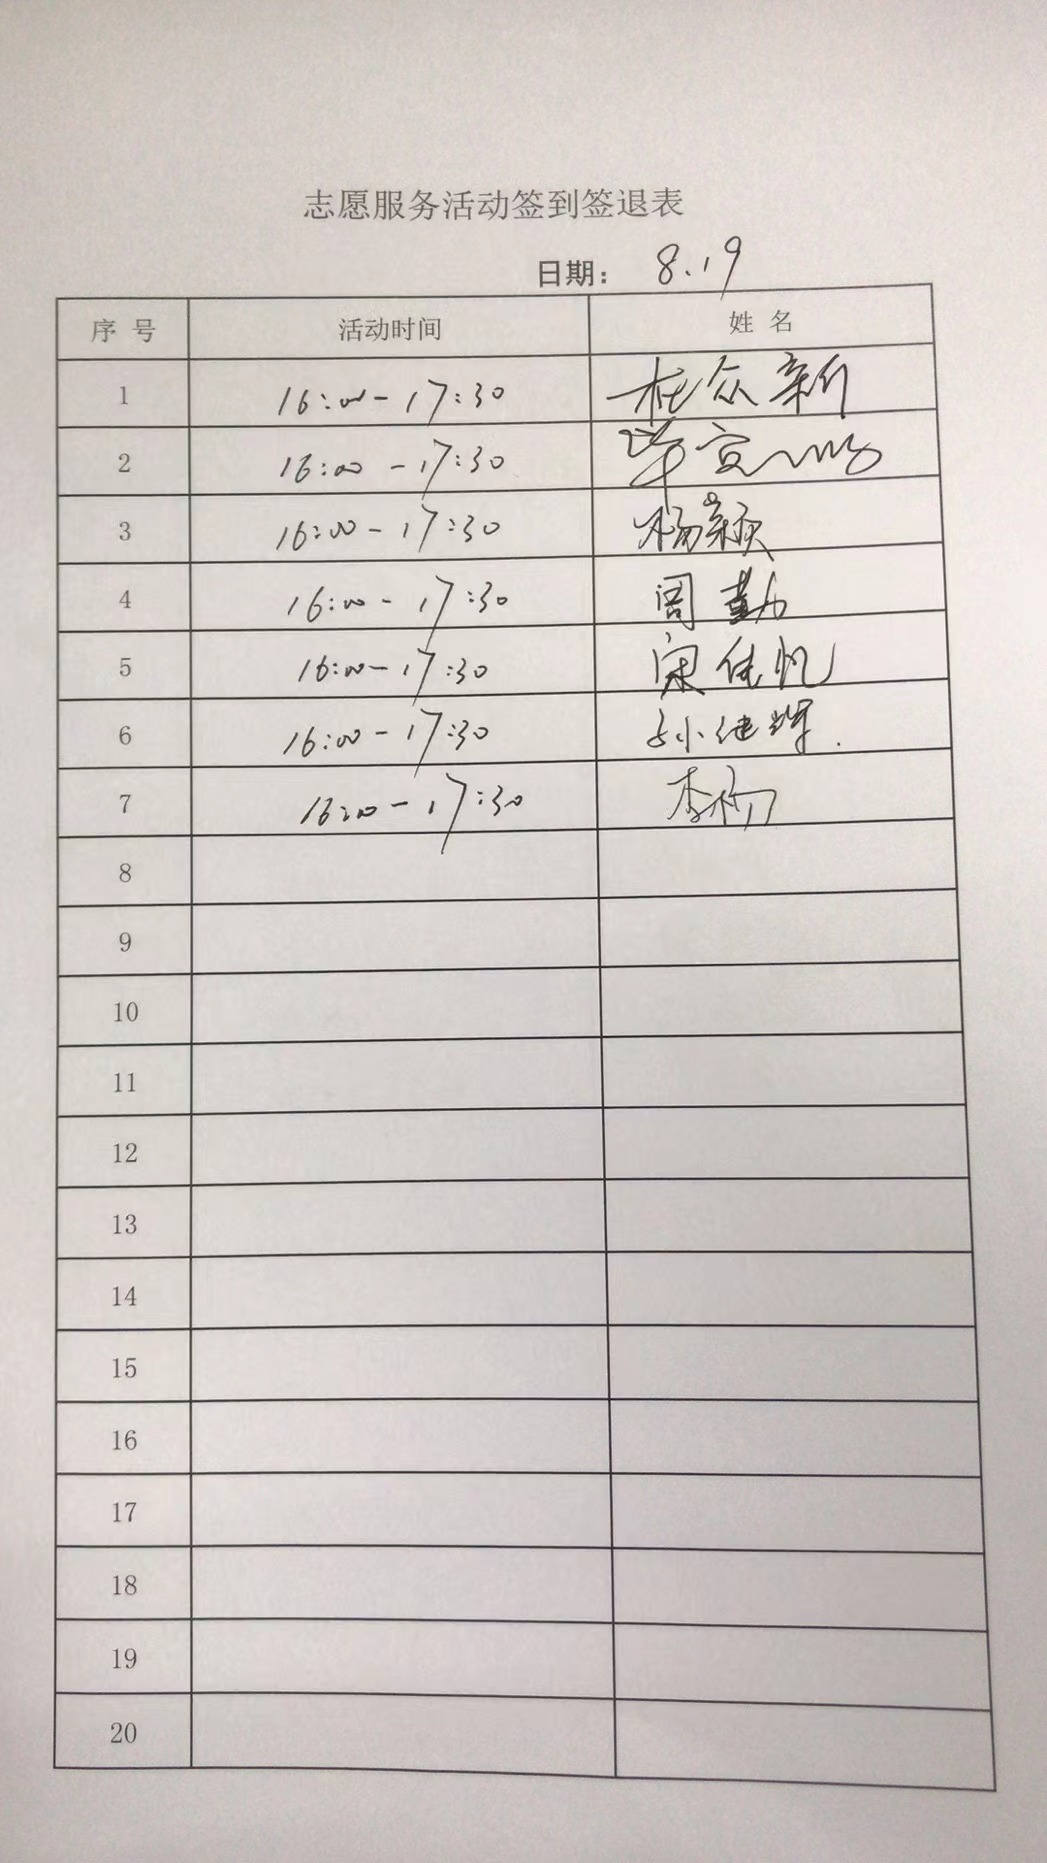 志愿服务活动签到签退表
日期： 8.19
序 号 活动时间 姓 名
1 16:00-17:30 杜众新
2 16:00-17:30 毕
3 16:00-17:30 杨颖
4 16:00-17:30 周勤
5 16:00-17:30 宋佳忆
6 16:00-17:30 孙继辉
7 16:00-17:30 李杨
8
9
10
11
12
13
14
15
16
17
18
19
20